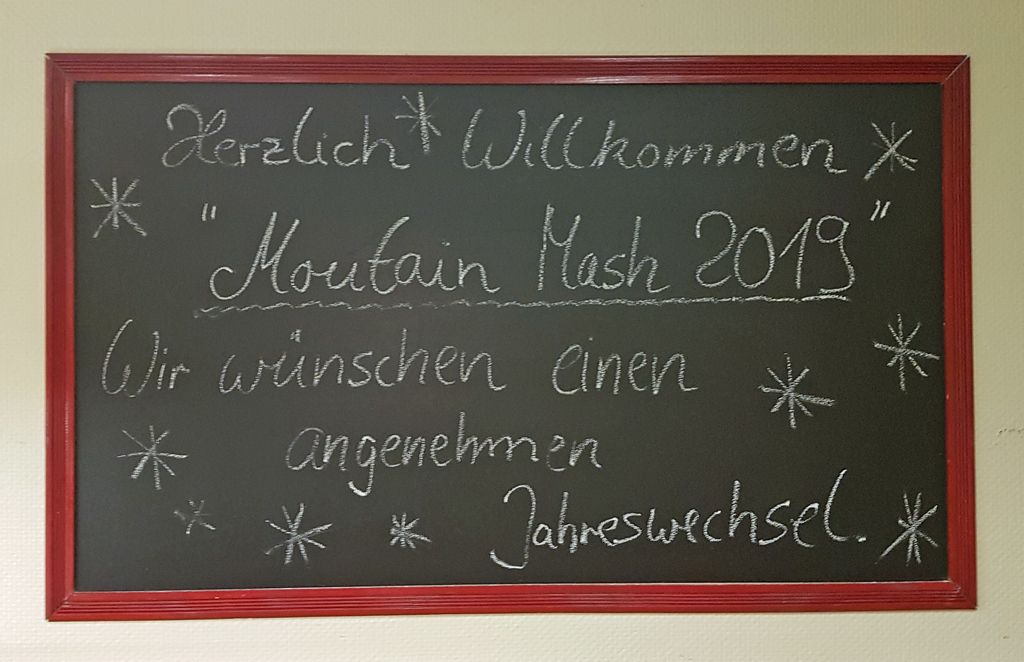 Herzlich Willkommen
"Moutain Mash 2019"
Wir wünschen einen
angenehmen
Jahreswechsel.